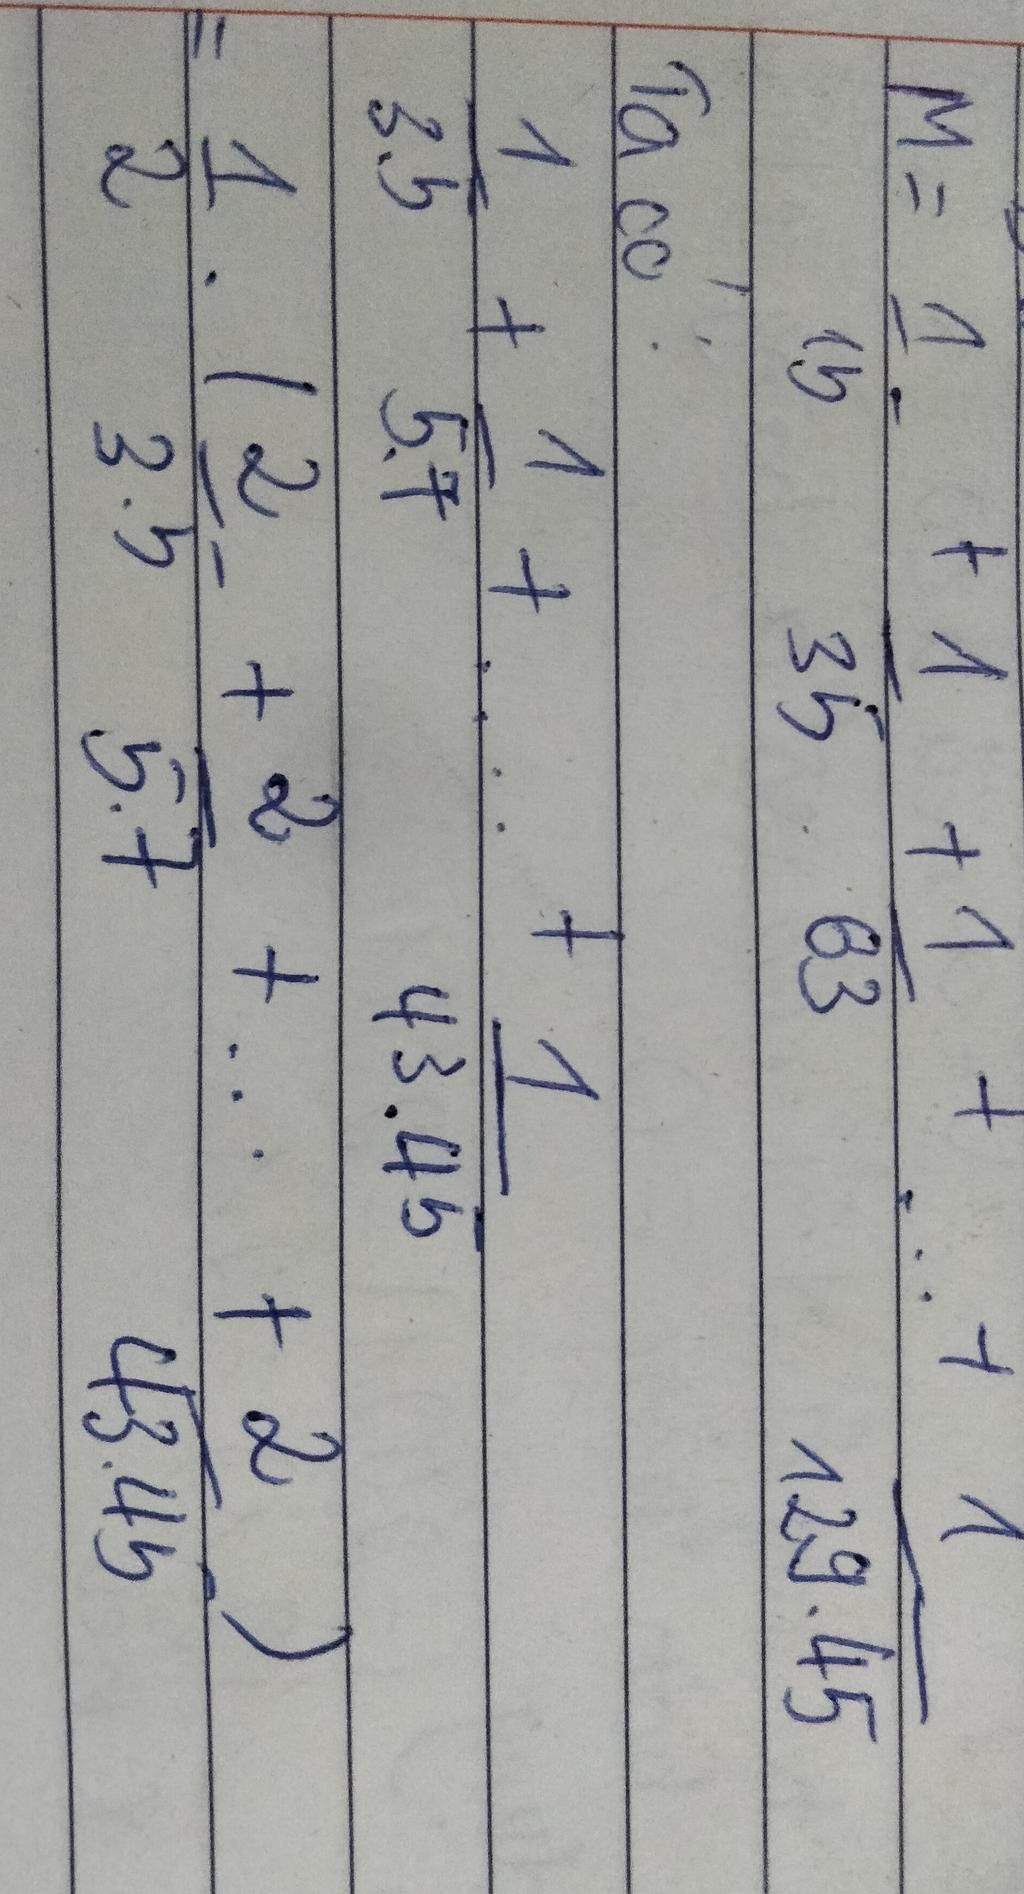 M = 1/15 + 1/35 + 1/63 + ... + 1/129.45
Ta có:
1/3.5 + 1/5.7 + .... + 1/43.45
= 1/2 . (2/3.5 + 2/5.7 + ... + 2/43.45)